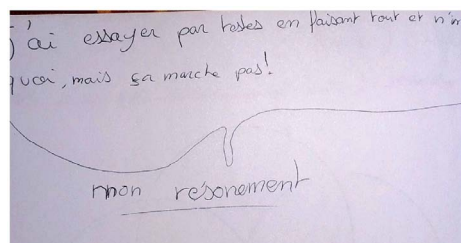 J'ai essayer par testes en faisant tout et n'im
quoi, mais ça marche pas!
mon résonement